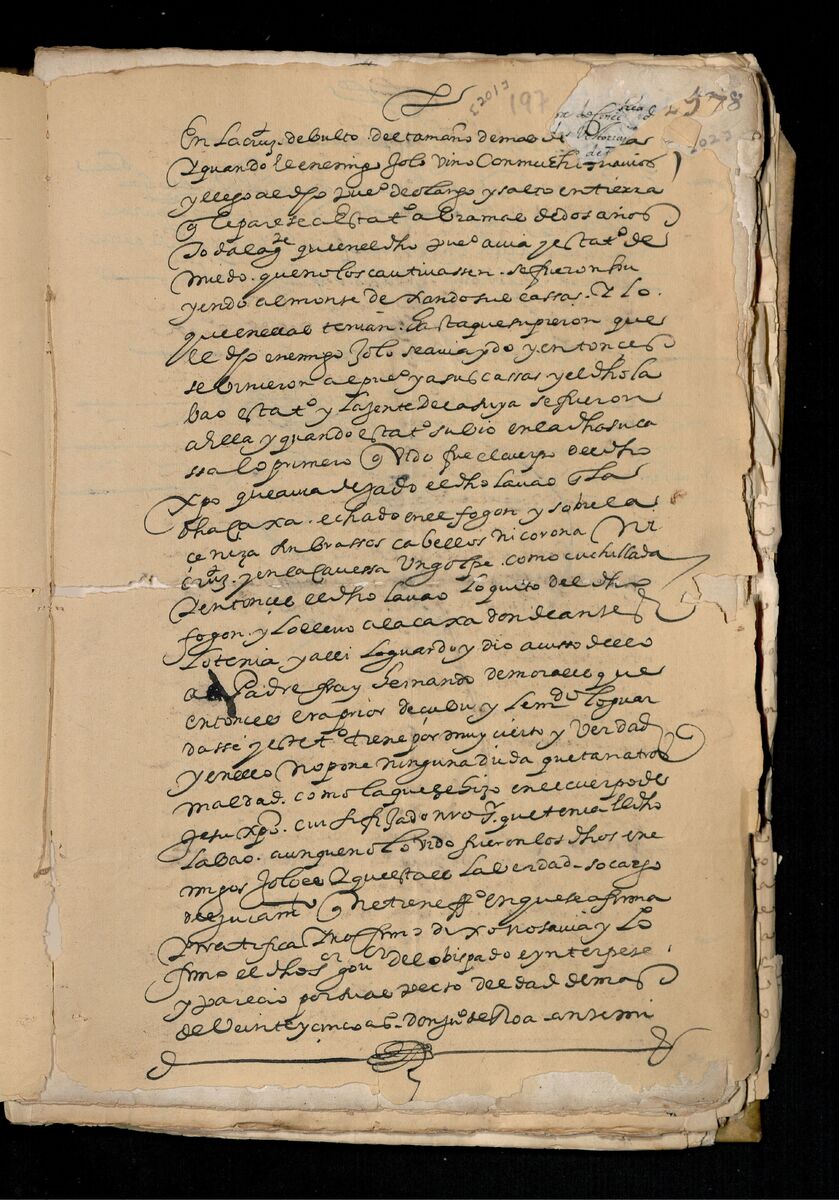 E2013 197 578
2023
En La cruz. de bulto. del tamaño de mas de
Y quando el enemigo Jolo vino Con muchos navios
y llego al dho pueo de olango y salto en tierra
q le parese a Estato abra mas de dos años
Toda la ge que en el dho pueo avia y esta to de
miedo. que no los cautivassen. se fueron hu
yendo al monte dexando sus cassas. Y lo
que en ellas tenian. hasta que supieron que
el dho enemigo Jolo se avia ydo y entonces
se binieron al pueo y a sus cassas y el dho la
bao este to y la Jente de la suya se fueron
a ella y quando este to subio en la dha su ca
ssa lo primero q vido fue el cuerpo del dho
xpo que avia dejado el dho lavao en la
dha Caxa. echado en el fogon y sobre la
ceniza sin brassos cabellos ni corona ni
cruz. y en la Cavessa un golpe. como cuchillada
Y entonces el dho lavao lo quito del dho
fogon. y lo llevo a la caxa donde antes
lo tenia y alli lo guardo y dio avisso dello
al Padre fray hernando de morales que
entonces era prior de cubu y le mdo lo guar
dasse y este to tiene por muy cierto y Verdad
y en ello no pone ninguna duda que tan atros
maldad. como la que se hizo en el cuerpo de
Jesu xpo. crusifijado nro sr. que tenia el dho
labao. aunque no lo vido fueron los dhos ene
migos Joloes Y que esta es la berdad so cargo
del juramto q ne tiene fho en que se afirma
Y rratifica Y no firmo dixo no savia y lo
firmo el dho sor gour del obispado e ynterpete.
y parecio por su aspecto del edad de mas
de Veinte y cinco as. don Ju.o de Roa. ante mi